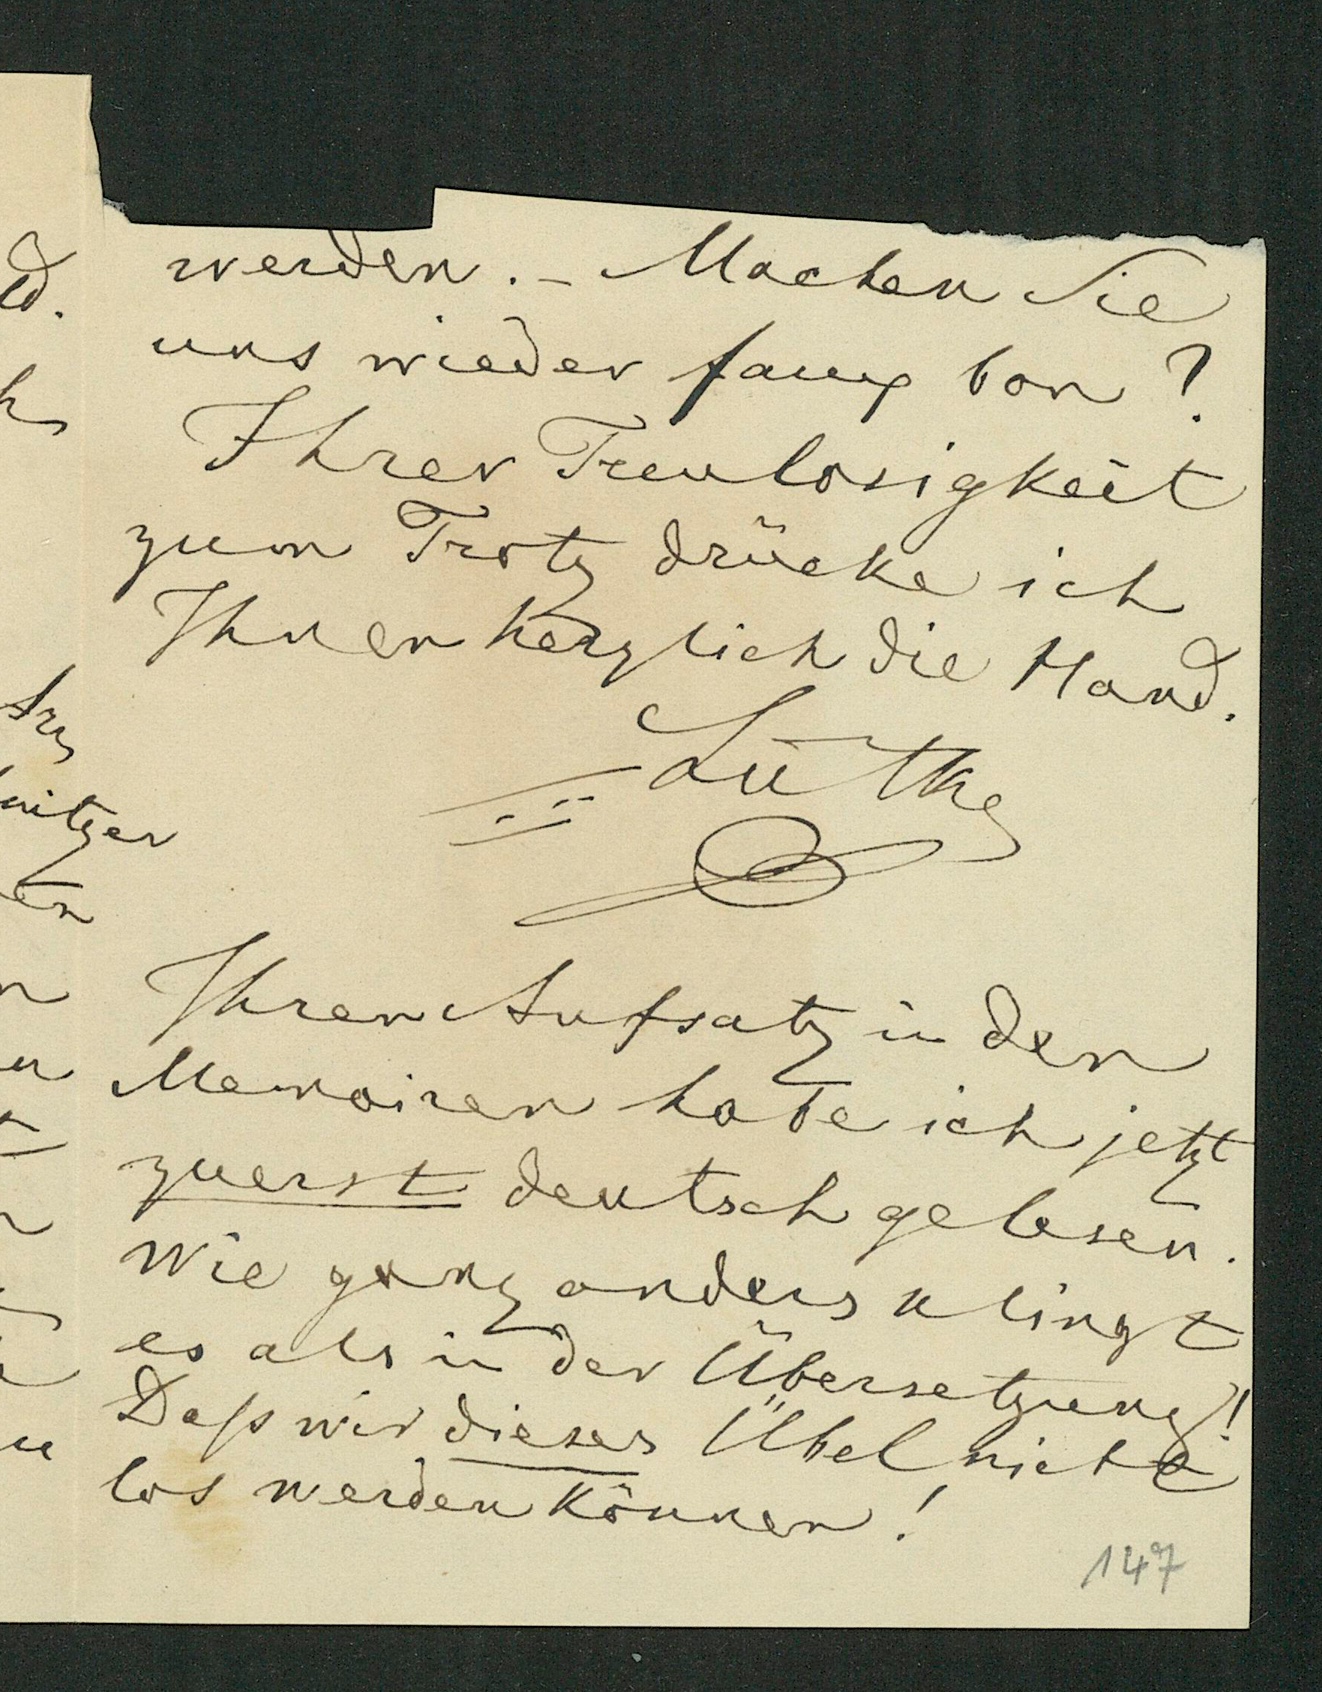 werden. – Machen Sie
uns wieder faux bon?
Ihrer Treulosigkeit
zum Trotz drücke ich
Ihnen herzlich die Hand.
Ihren Aufsatz in den
Memoiren habe ich jetzt
zuerst deutsch gelesen.
Wie ganz anders klingt
es als in der Übersetzung!
Daß wir dieses Übel nicht
los werden können!
147